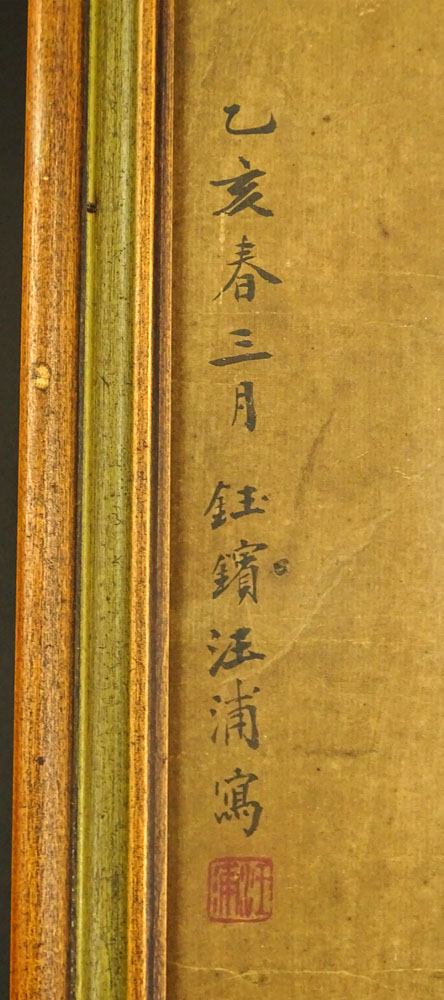 乙亥春三月 鈺鑌汪浦寫
汪浦